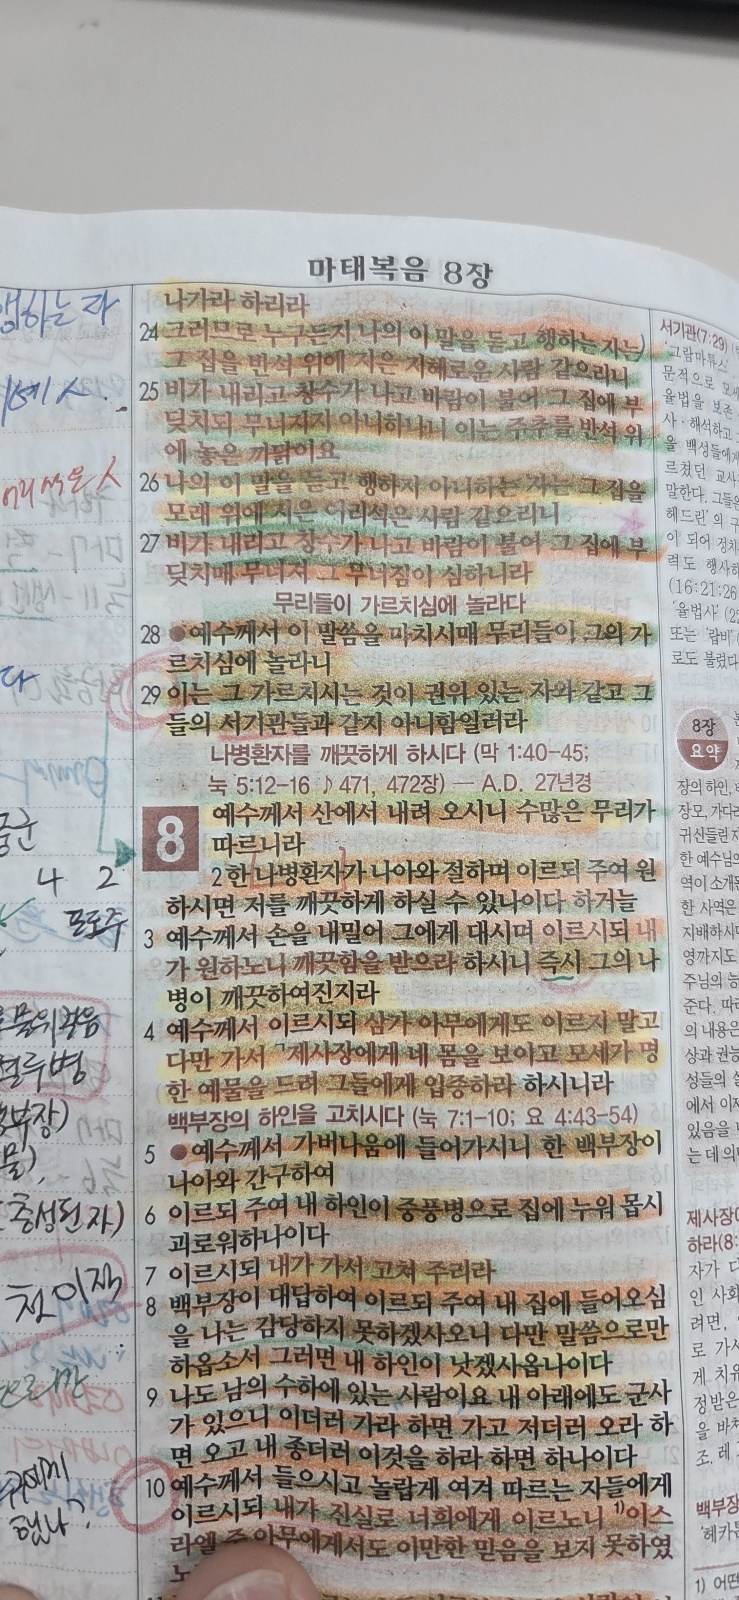 마태복음 8장
나가라 하리라
24 그러므로 누구든지 나의 이 말을 듣고 행하는 자는
그 집을 반석 위에 지은 지혜로운 사람 같으리니
25 비가 내리고 창수가 나고 바람이 불어 그 집에 부
딪치되 무너지지 아니하나니 이는 주추를 반석 위
에 놓은 까닭이요
26 나의 이 말을 듣고 행하지 아니하는 자는 그 집을
모래 위에 지은 어리석은 사람 같으리니
27 비가 내리고 창수가 나고 바람이 불어 그 집에 부
딪치매 무너져 그 무너짐이 심하니라
무리들이 가르치심에 놀라다
28 ●예수께서 이 말씀을 마치시매 무리들이 그의 가
르치심에 놀라니
29 이는 그 가르치시는 것이 권위 있는 자와 같고 그
들의 서기관들과 같지 아니함일러라
나병환자를 깨끗하게 하시다 (막 1:40-45;
눅 5:12-16 ♪471, 472장) ― A.D. 27년경
8 예수께서 산에서 내려 오시니 수많은 무리가
따르니라
2 한 나병환자가 나아와 절하며 이르되 주여 원
하시면 저를 깨끗하게 하실 수 있나이다 하거늘
3 예수께서 손을 내밀어 그에게 대시며 이르시되 내
가 원하노니 깨끗함을 받으라 하시니 즉시 그의 나
병이 깨끗하여진지라
4 예수께서 이르시되 삼가 아무에게도 이르지 말고
다만 가서 ㄱ제사장에게 네 몸을 보이고 모세가 명
한 예물을 드려 그들에게 입증하라 하시니라
백부장의 하인을 고치시다 (눅 7:1-10; 요 4:43-54)
5 ●예수께서 가버나움에 들어가시니 한 백부장이
나아와 간구하여
6 이르되 주여 내 하인이 중풍병으로 집에 누워 몹시
괴로워하나이다
7 이르시되 내가 가서 고쳐 주리라
8 백부장이 대답하여 이르되 주여 내 집에 들어오심
을 나는 감당하지 못하겠사오니 다만 말씀으로만
하옵소서 그러면 내 하인이 낫겠사옵나이다
9 나도 남의 수하에 있는 사람이요 내 아래에도 군사
가 있으니 이더러 가라 하면 가고 저더러 오라 하
면 오고 내 종더러 이것을 하라 하면 하나이다
10 예수께서 들으시고 놀랍게 여겨 따르는 자들에게
이르시되 내가 진실로 너희에게 이르노니 1)이스
라엘 중 아무에게서도 이만한 믿음을 보지 못하였
노
서기관(7:29)
문적으로
율법을 보존
사·해석하고
을 백성들에게
르쳤던 교사
말한다. 그들은
헤드린'의
이 되어 정치
력도 행사하
(16:21;26
'율법사'
또는 '랍비'
로도 불렸다
8장
요약
장의 하인,
장모, 가다라
귀신들린 자
한 예수님의
역이 소개된
한 사역은
지배하시
영까지도
주님의 능
준다. 따라
의 내용은
상과 권능
성들의 삶
에서 이제
있음을
는 데 의미
제사장에
하라(8:
자가
인 사회
려면,
로 가서
게 치유
정받은
을 바쳐
조. 레
백부장
'헤카톤
1) 어떤
행하는 자
4 2
포로주
중풍병
(충성된 자)